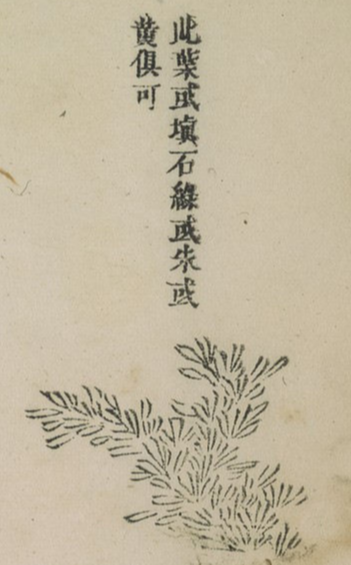 此葉或填石綠或朱或
黄俱可